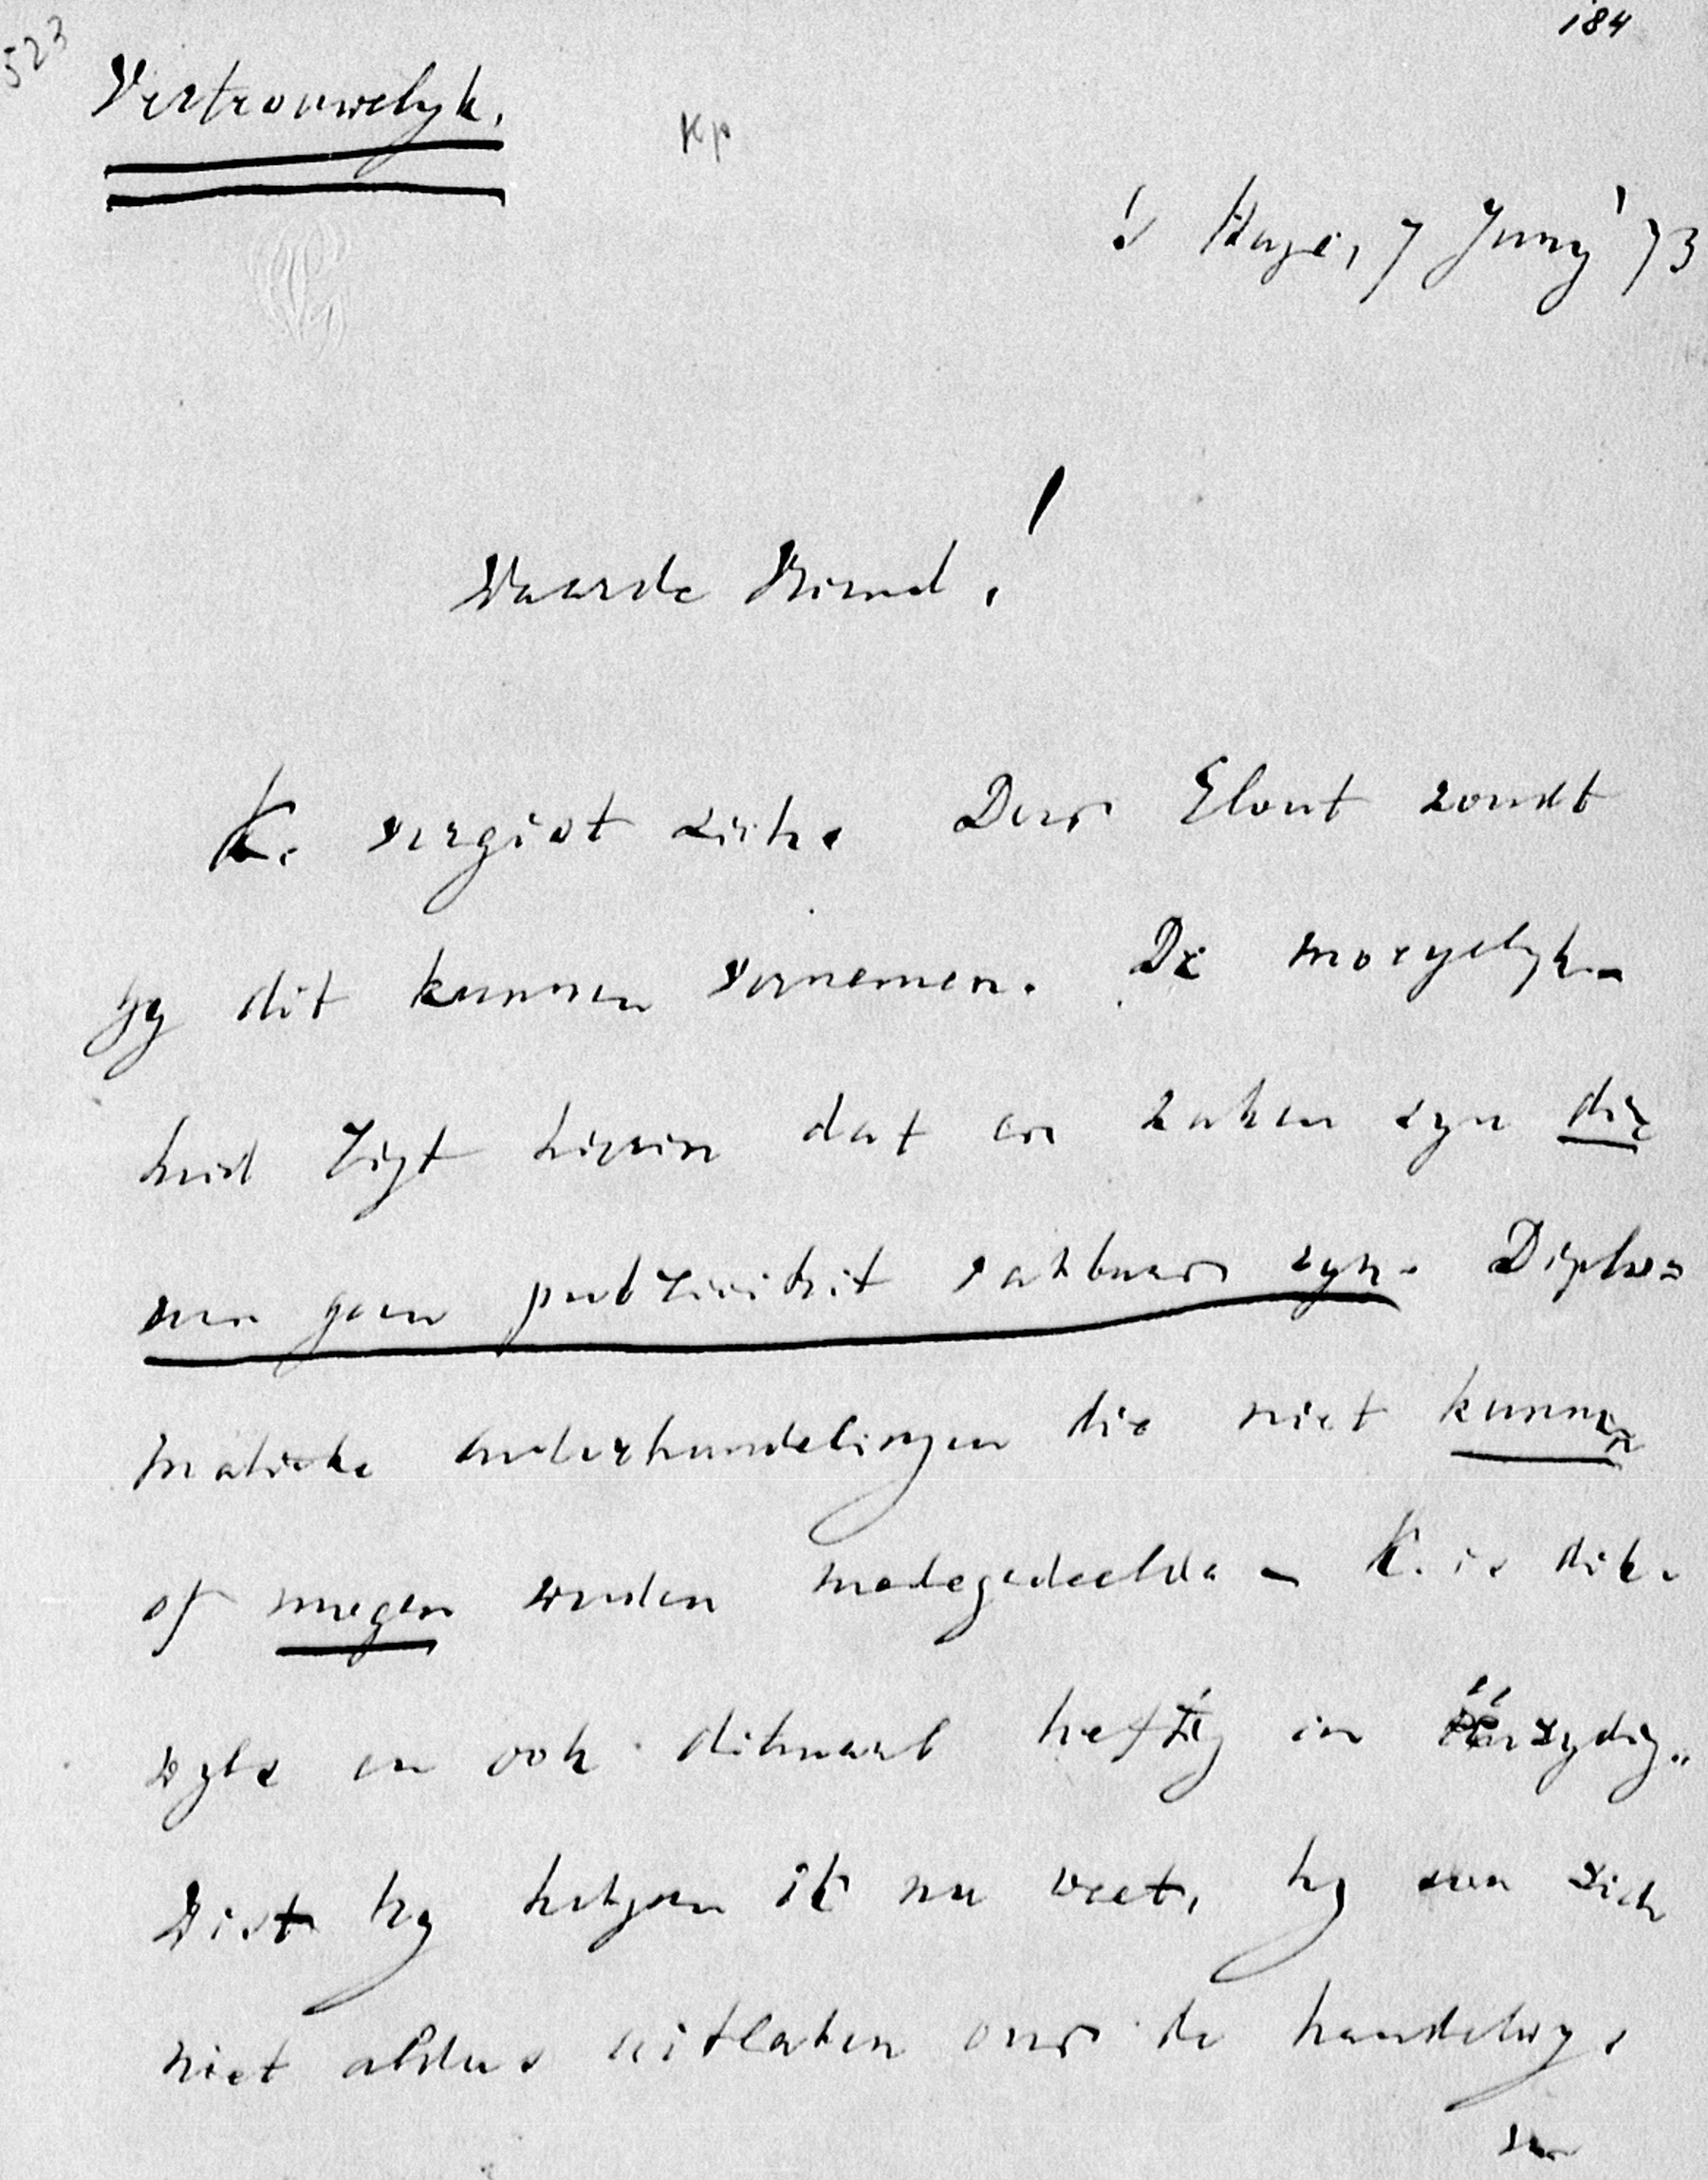 523
184
Vertrouwelyk.
Kp
's Hage, 7 Juny '73
Waarde Vriend!
K. vergist zich. Door Elout zoudt
gy dit kunnen vernemen. De moeyelyk-
heid ligt hierin dat er zaken zyn die
voor geen publiciteit vatbaar zyn. Diplo=
matieke onderhandelingen die niet kunnen
of mogen worden medegedeeld. - K. is dik-
wyls en ook ditmaal heftig en éénzydig.
Wist hy hetgeen ik nu weet, hy zou zich
niet aldus uitlaten over de handelwys
van